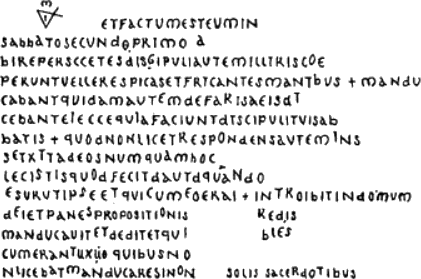 ETFACTUMESTEUMIN
SABBATOSECUNDOPRIMO A
BIREPERSCCETESDISGIPULIAUTEMILLTRISCOE
PERUNTVELLERESPICASETFRICANTESMANTBUS + MANDU
CABANTQUIDAMAUTEMDEFARISAEISDT
CEBANTELECCEQUIAFACIUNTDTSCIPULITVISAB
BATIS + QUODNONLICETRESPONDENSAUTEMINS
SETXTTADEOSNUMQUAMHOC
LECISTISQUODFECITDAUTDQUANDO
ESURUTIPSEETQUICUMEOERAI + INTROIBITINDOMUM
DEIETPANESPROPOSITIONIS REDIS
MANDUCAUITETDEDITETQUI BLES
CUMERANTUXUO QUIBUSNO
NLICEBATMANDUCARESINON SOLIS SACERDOTIBUS